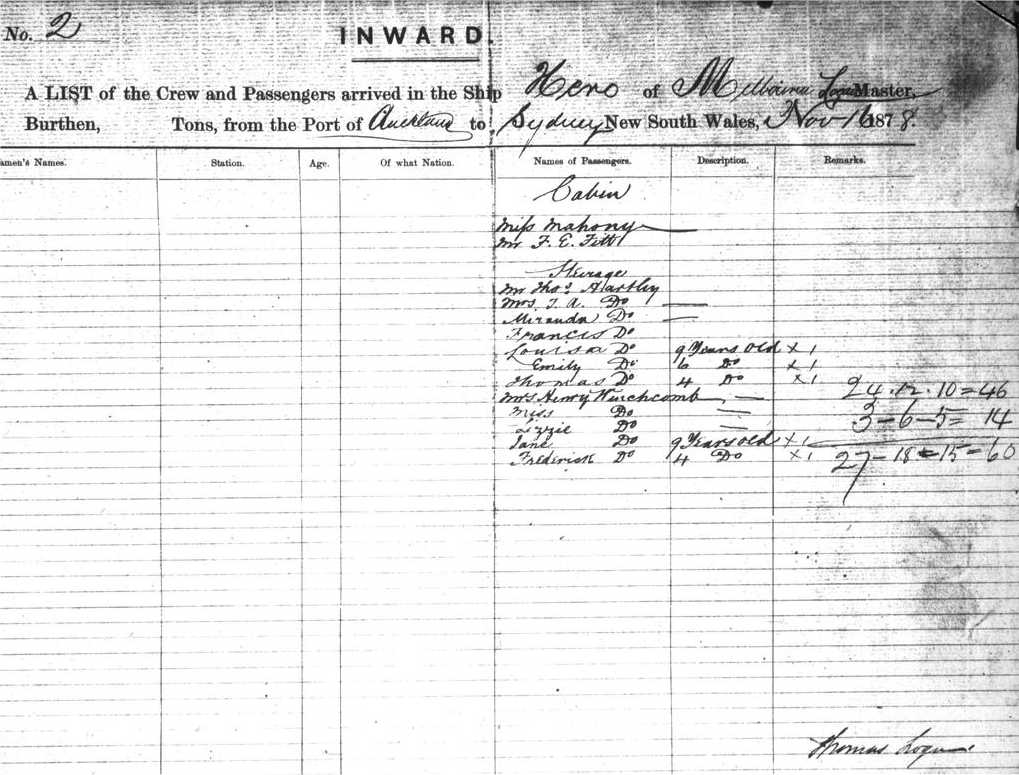 No. 2
INWARD.
A LIST of the Crew and Passengers arrived in the Ship Hero of Melbourne Logan Master,
Burthen, Tons, from the Port of Auckland to Sydney New South Wales, Nov 16 1878.
amen's Names. Station. Age. Of what Nation. Names of Passengers. Description. Remarks.
Cabin
Miss Mahony —
Mr F. E. Fitt
Steerage
Mr Thos Hartley
Mrs T. A. Do —
Miranda Do —
Francis Do
Louisa Do 9 Years old × 1
Emily Do 6 Do × 1
Thomas Do 4 Do × 1
24.12.10=46
Mrs Henry Winchcomb —
Miss Do —
3-6-5= 14
Lizzie Do —
Jane Do 9 Years old × 1
Frederick Do 4 Do × 1
27-18-15=60
Thomas Logan